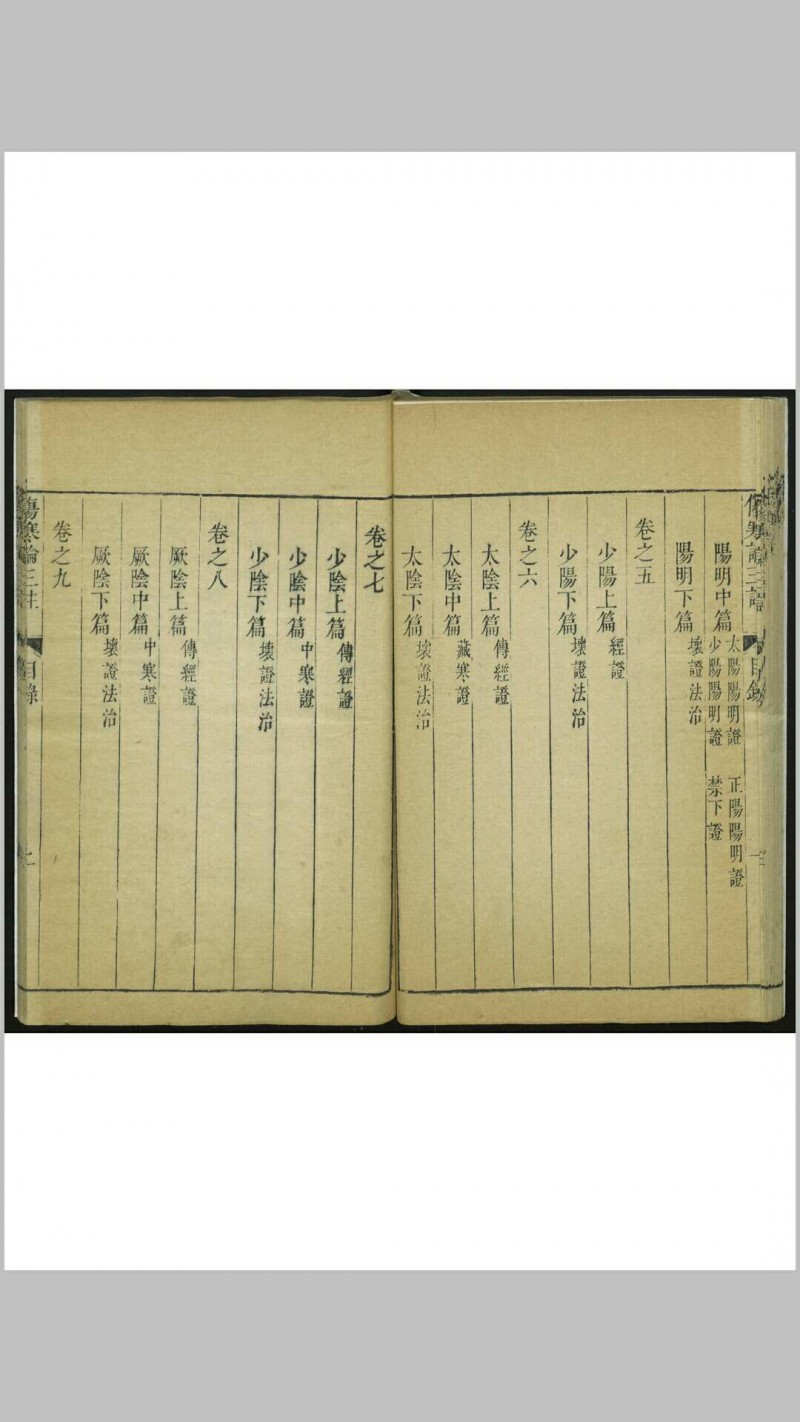 傷寒論三註
目錄
陽明中篇 太陽陽明證 正陽陽明證
少陽陽明證 禁下證
陽明下篇 壞證法治
卷之五
少陽上篇 經證
少陽下篇 壞證法治
卷之六
太陰上篇 傳經證
太陰中篇 藏寒證
太陰下篇 壞證法治
卷之七
少陰上篇 傳經證
少陰中篇 中寒證
少陰下篇 壞證法治
卷之八
厥陰上篇 傳經證
厥陰中篇 中寒證
厥陰下篇 壞證法治
卷之九
傷寒論三註
目錄